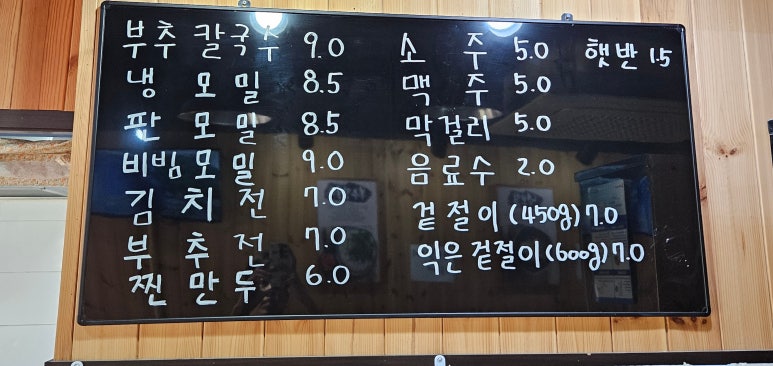 부추칼국수 9.0
냉모밀 8.5
판모밀 8.5
비빔모밀 9.0
김치전 7.0
부추전 7.0
찐만두 6.0
소주 5.0
맥주 5.0
막걸리 5.0
음료수 2.0
겉절이(450g)7.0
익은겉절이(600g)7.0
햇반 1.5